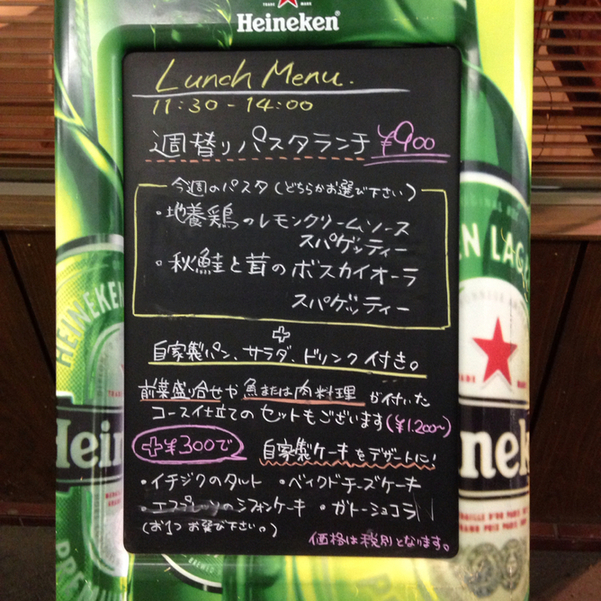 Heineken
Lunch Menu.
11:30-14:00
週替りパスタランチ ¥900
今週のパスタ(どちらかお選び下さい)
・地養鶏のレモンクリームソース
スパゲッティー
・秋鮭と茸のボスカイオーラ
スパゲッティー
+
自家製パン、サラダ、ドリンク付き。
前菜盛り合せや魚または肉料理が付いた
コース仕立てのセットもございます(¥1,200〜)
+¥300で 自家製ケーキをデザートに!
・イチジクのタルト ・ベイクドチーズケーキ
・エスプレッソのシフォンケーキ ・ガトーショコラ
(お1つお選び下さい。)
価格は税別となります。
HEINEKEN
Hei
PREMI
EN LAGE
neken